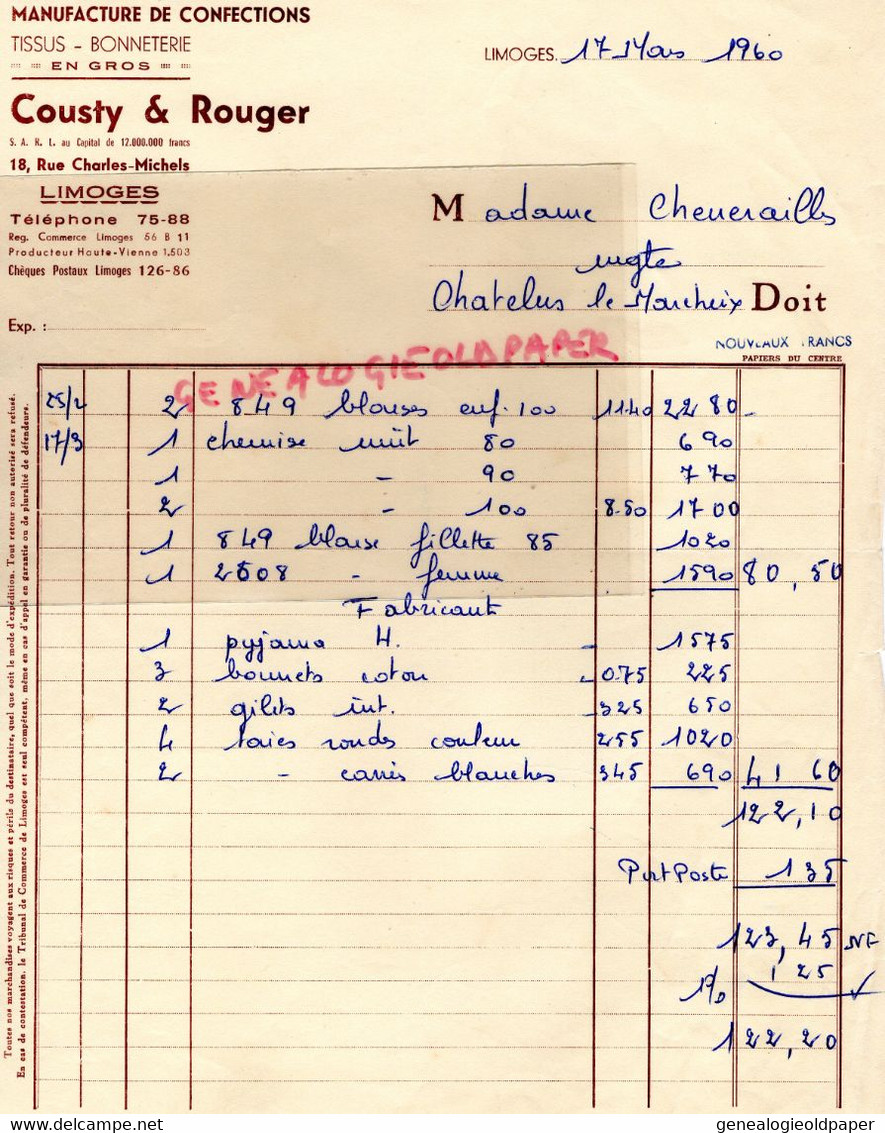 MANUFACTURE DE CONFECTIONS
TISSUS - BONNETERIE
EN GROS
Cousty & Rouger
S. A. R. L. au Capital de 12.000.000 francs
18, Rue Charles-Michels
LIMOGES
Téléphone 75-88
Reg. Commerce Limoges 56 B 11
Producteur Haute-Vienne 1.503
Chèques Postaux Limoges 126-86
Exp. :
LIMOGES. 17 Mars 1960
Madame Chenerailles
mgte
Chatelus le Marcheix Doit
NOUVEAUX FRANCS
PAPIERS DU CENTRE
GENEALOGIEOLDPAPER
25/2 2 849 blouses enf. 100 11.40 22 80
17/3 1 chemise nuit 80 6 90
1 - 90 7 70
2 - 100 8.50 17 00
1 849 blouse fillette 85 10 20
1 2508 - femme 15 90 80,50
Fabricant
1 pyjama H. - 15 75
3 bonnets coton - 0.75 2 25
2 gilets int. - 3 25 6 50
4 taies rondes couleur 2 55 10 20
2 - carrés blanches 3 45 6 90 41 60
122,10
Port Poste 1 35
123,45 NF
1% 1 25
122,20
Toutes nos marchandises voyagent aux risques et périls du destinataire, quel que soit le mode d'expédition. Tout retour non autorisé sera refusé.
En cas de contestation, le Tribunal de Commerce de Limoges est seul compétent, même en cas d'appel en garantie ou de pluralité de défendeurs.
delcampe.net
genealogieoldpaper